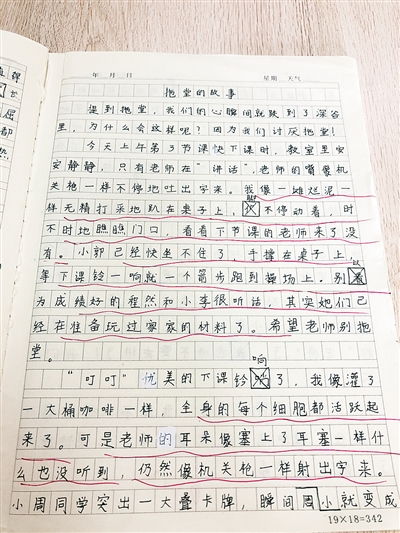 年 月 日 星期 天气
拖堂的故事
提到拖堂,我们的心瞬间就跌到了深谷
里,为什么会这样呢?因为我们讨厌拖堂!
今天上午第3节课快下课时,教室里安
安静静,只有老师在“讲话”,老师的嘴像机
关枪一样不停地吐出字来。我像一摊烂泥一
样无精打采地趴在桌子上,不停动着,时
不时地瞧瞧门口,看看下节课的老师来了没
有。小郭已经快坐不住了,手撑在桌子上,
等下课铃一响就一个箭步跑到操场上。别
为成绩好的程然和小李很听话,其实她们已
经在准备玩过家家的材料了。希望老师别拖
堂。
“叮叮”优美的下课铃响了,我像灌了
一大桶咖啡一样,全身的每个细胞都活跃起
来了。可是老师的耳朵像塞上了耳塞一样什
么也没听到,仍然像机关枪一样射出字来。
小周同学突出一大叠卡牌,瞬间周小就变成
19×18=342